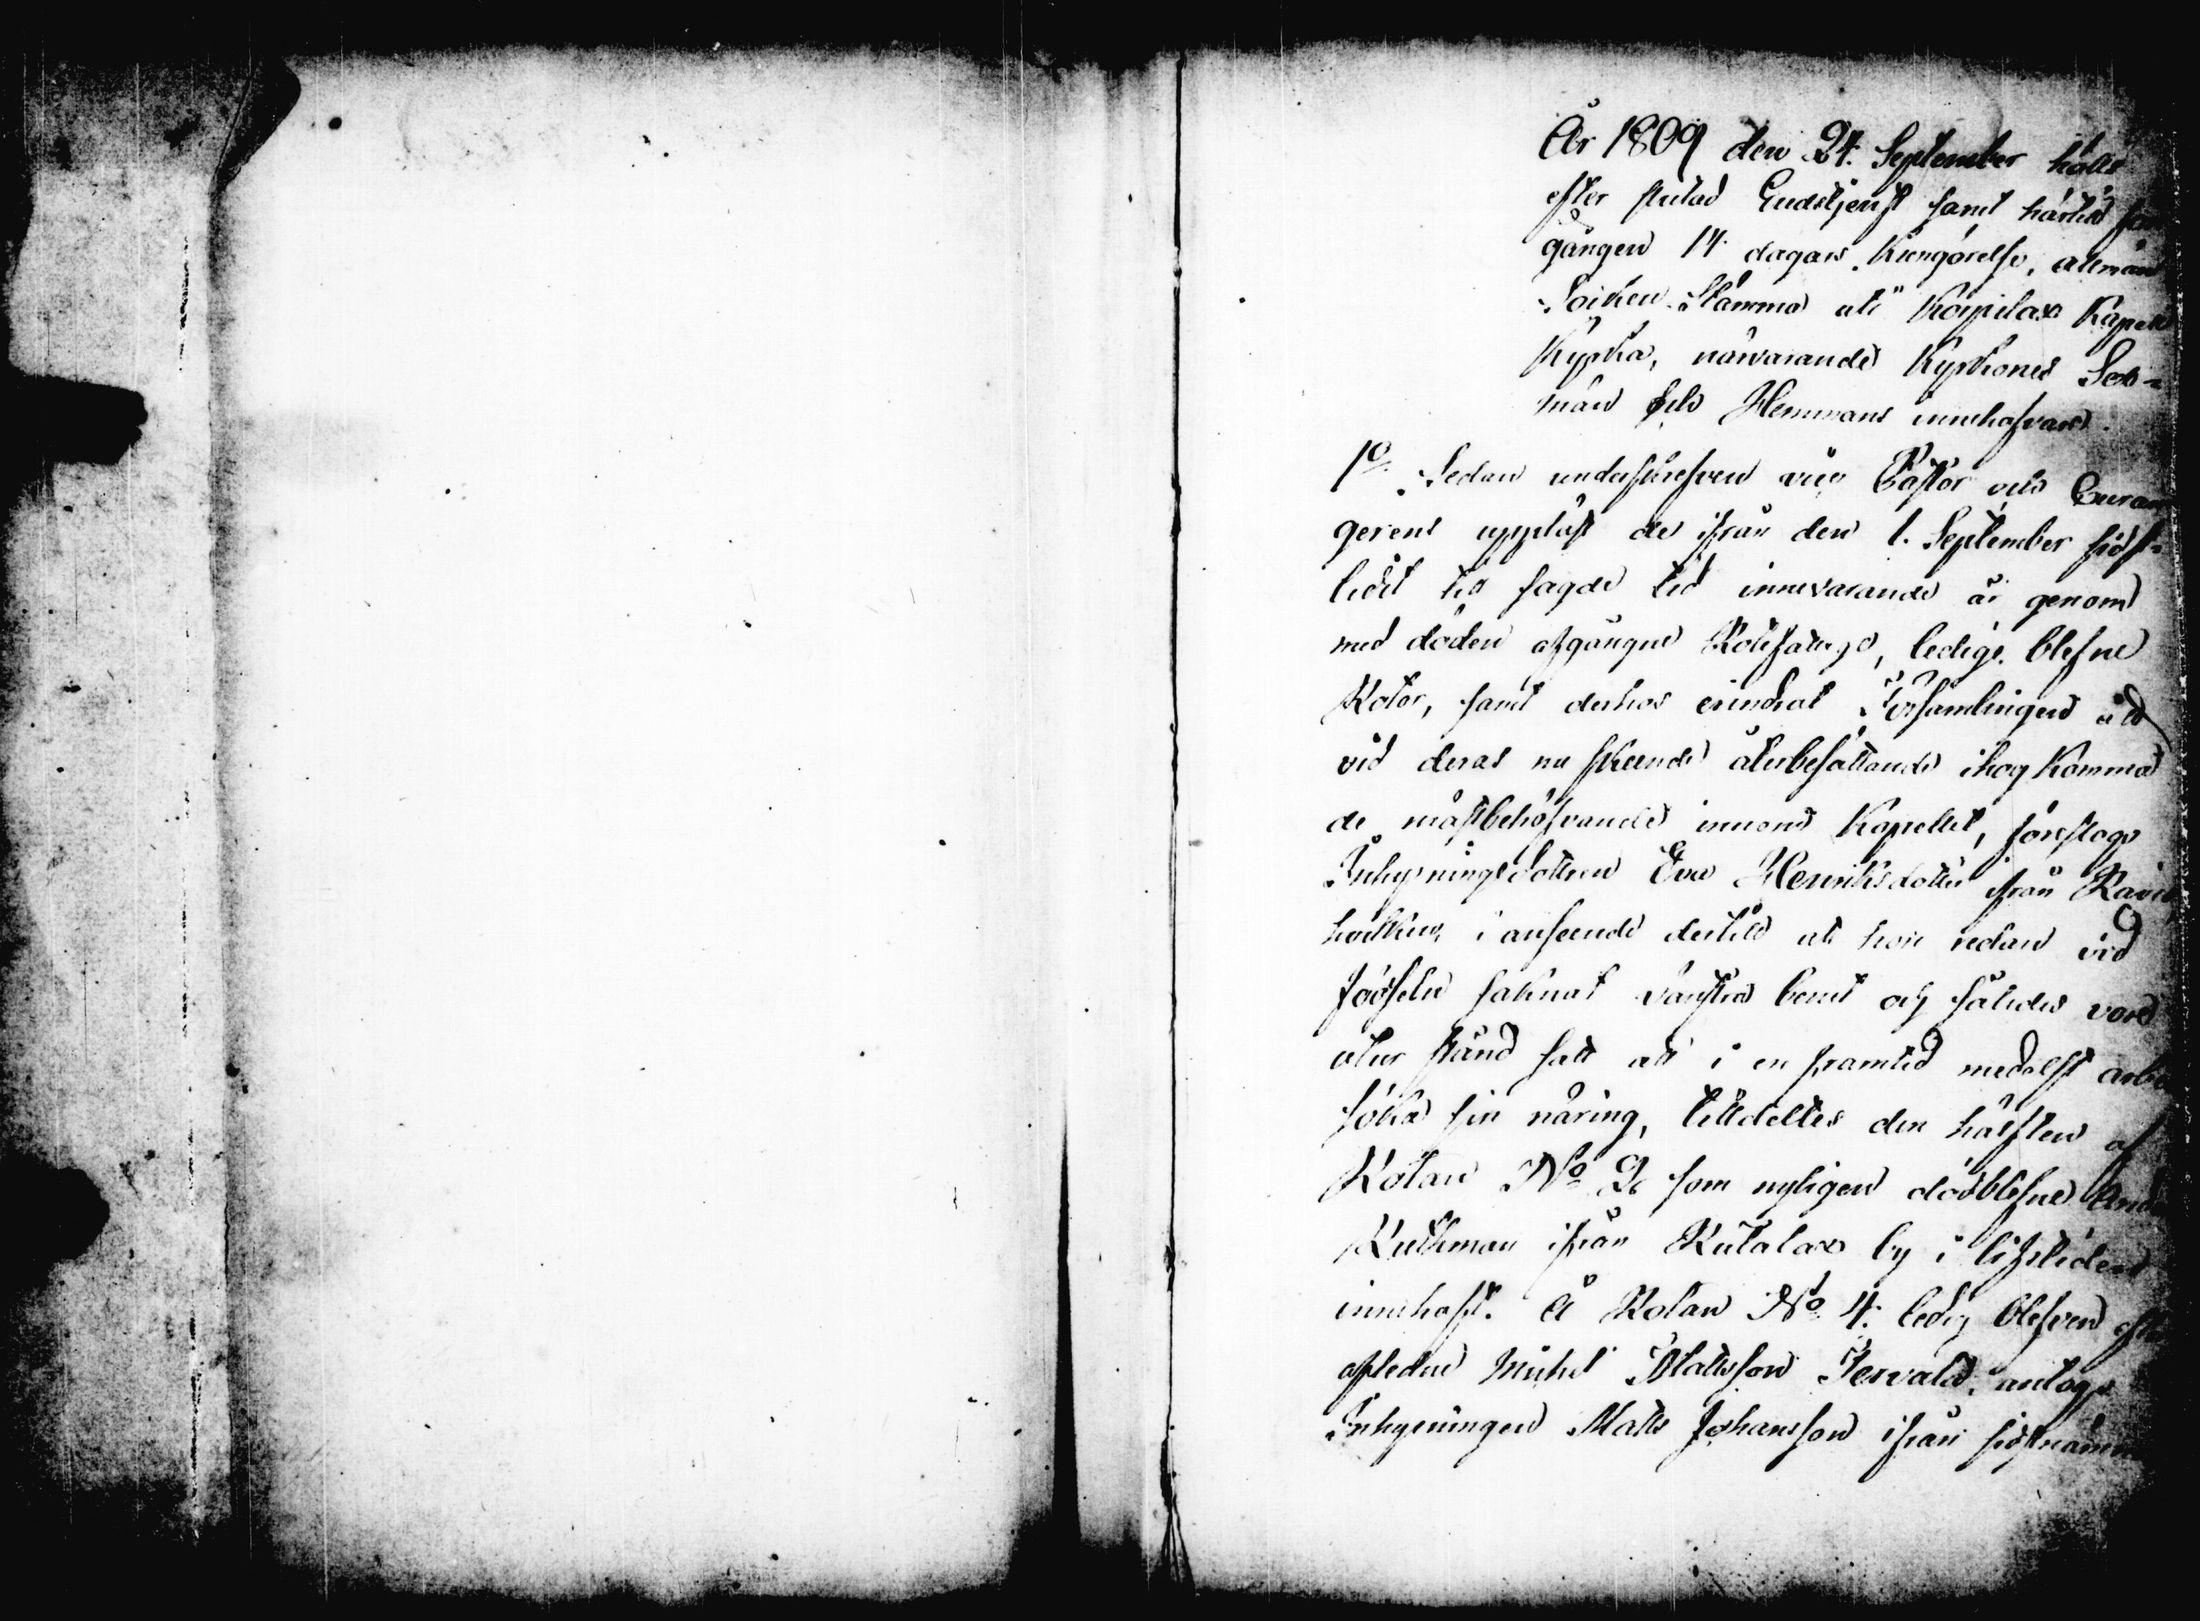 År 1809 den 24. September hålls
efter slutad Gudstjenst samt härtill före
gången 14 dagars Kungörelse, alman
Soiken Stämma uti Korpilax Kapell
Kyrka, närvarande Kyrkones Sex-
män och Hemmans innehafvare.
1o Sedan underskrefven vice Pastor och
gerent uppläst de ifrån den 1. September sidst-
ledit til sagde tid innevarande år genom
med döden afgångne Rotefattige, ledige blefne
Rotor, samt derhos erindrat Församlingen att
vid deras nu skeende återbesättande ihogkomma
de mästbehöfvande innom Kapellet, föreslogs
Inhysningsdottren Eva Henriksdotter ifrån
hvilken, i anseende dertill at hon redan vid
födseln saknat vänstra benet och således vore
utur stånd satt att i en framtid medelst
söka sin näring, tilldeltes den hälften af
Rotan No 2 som nyligen dödblefne
Kuthman ifrån Kutalax by i lifstiden
innehaft. Å Rotan No 4. ledig blefven efter
afledne Michel Mattsson antogs
Inhysningen Matts Johansson ifrån